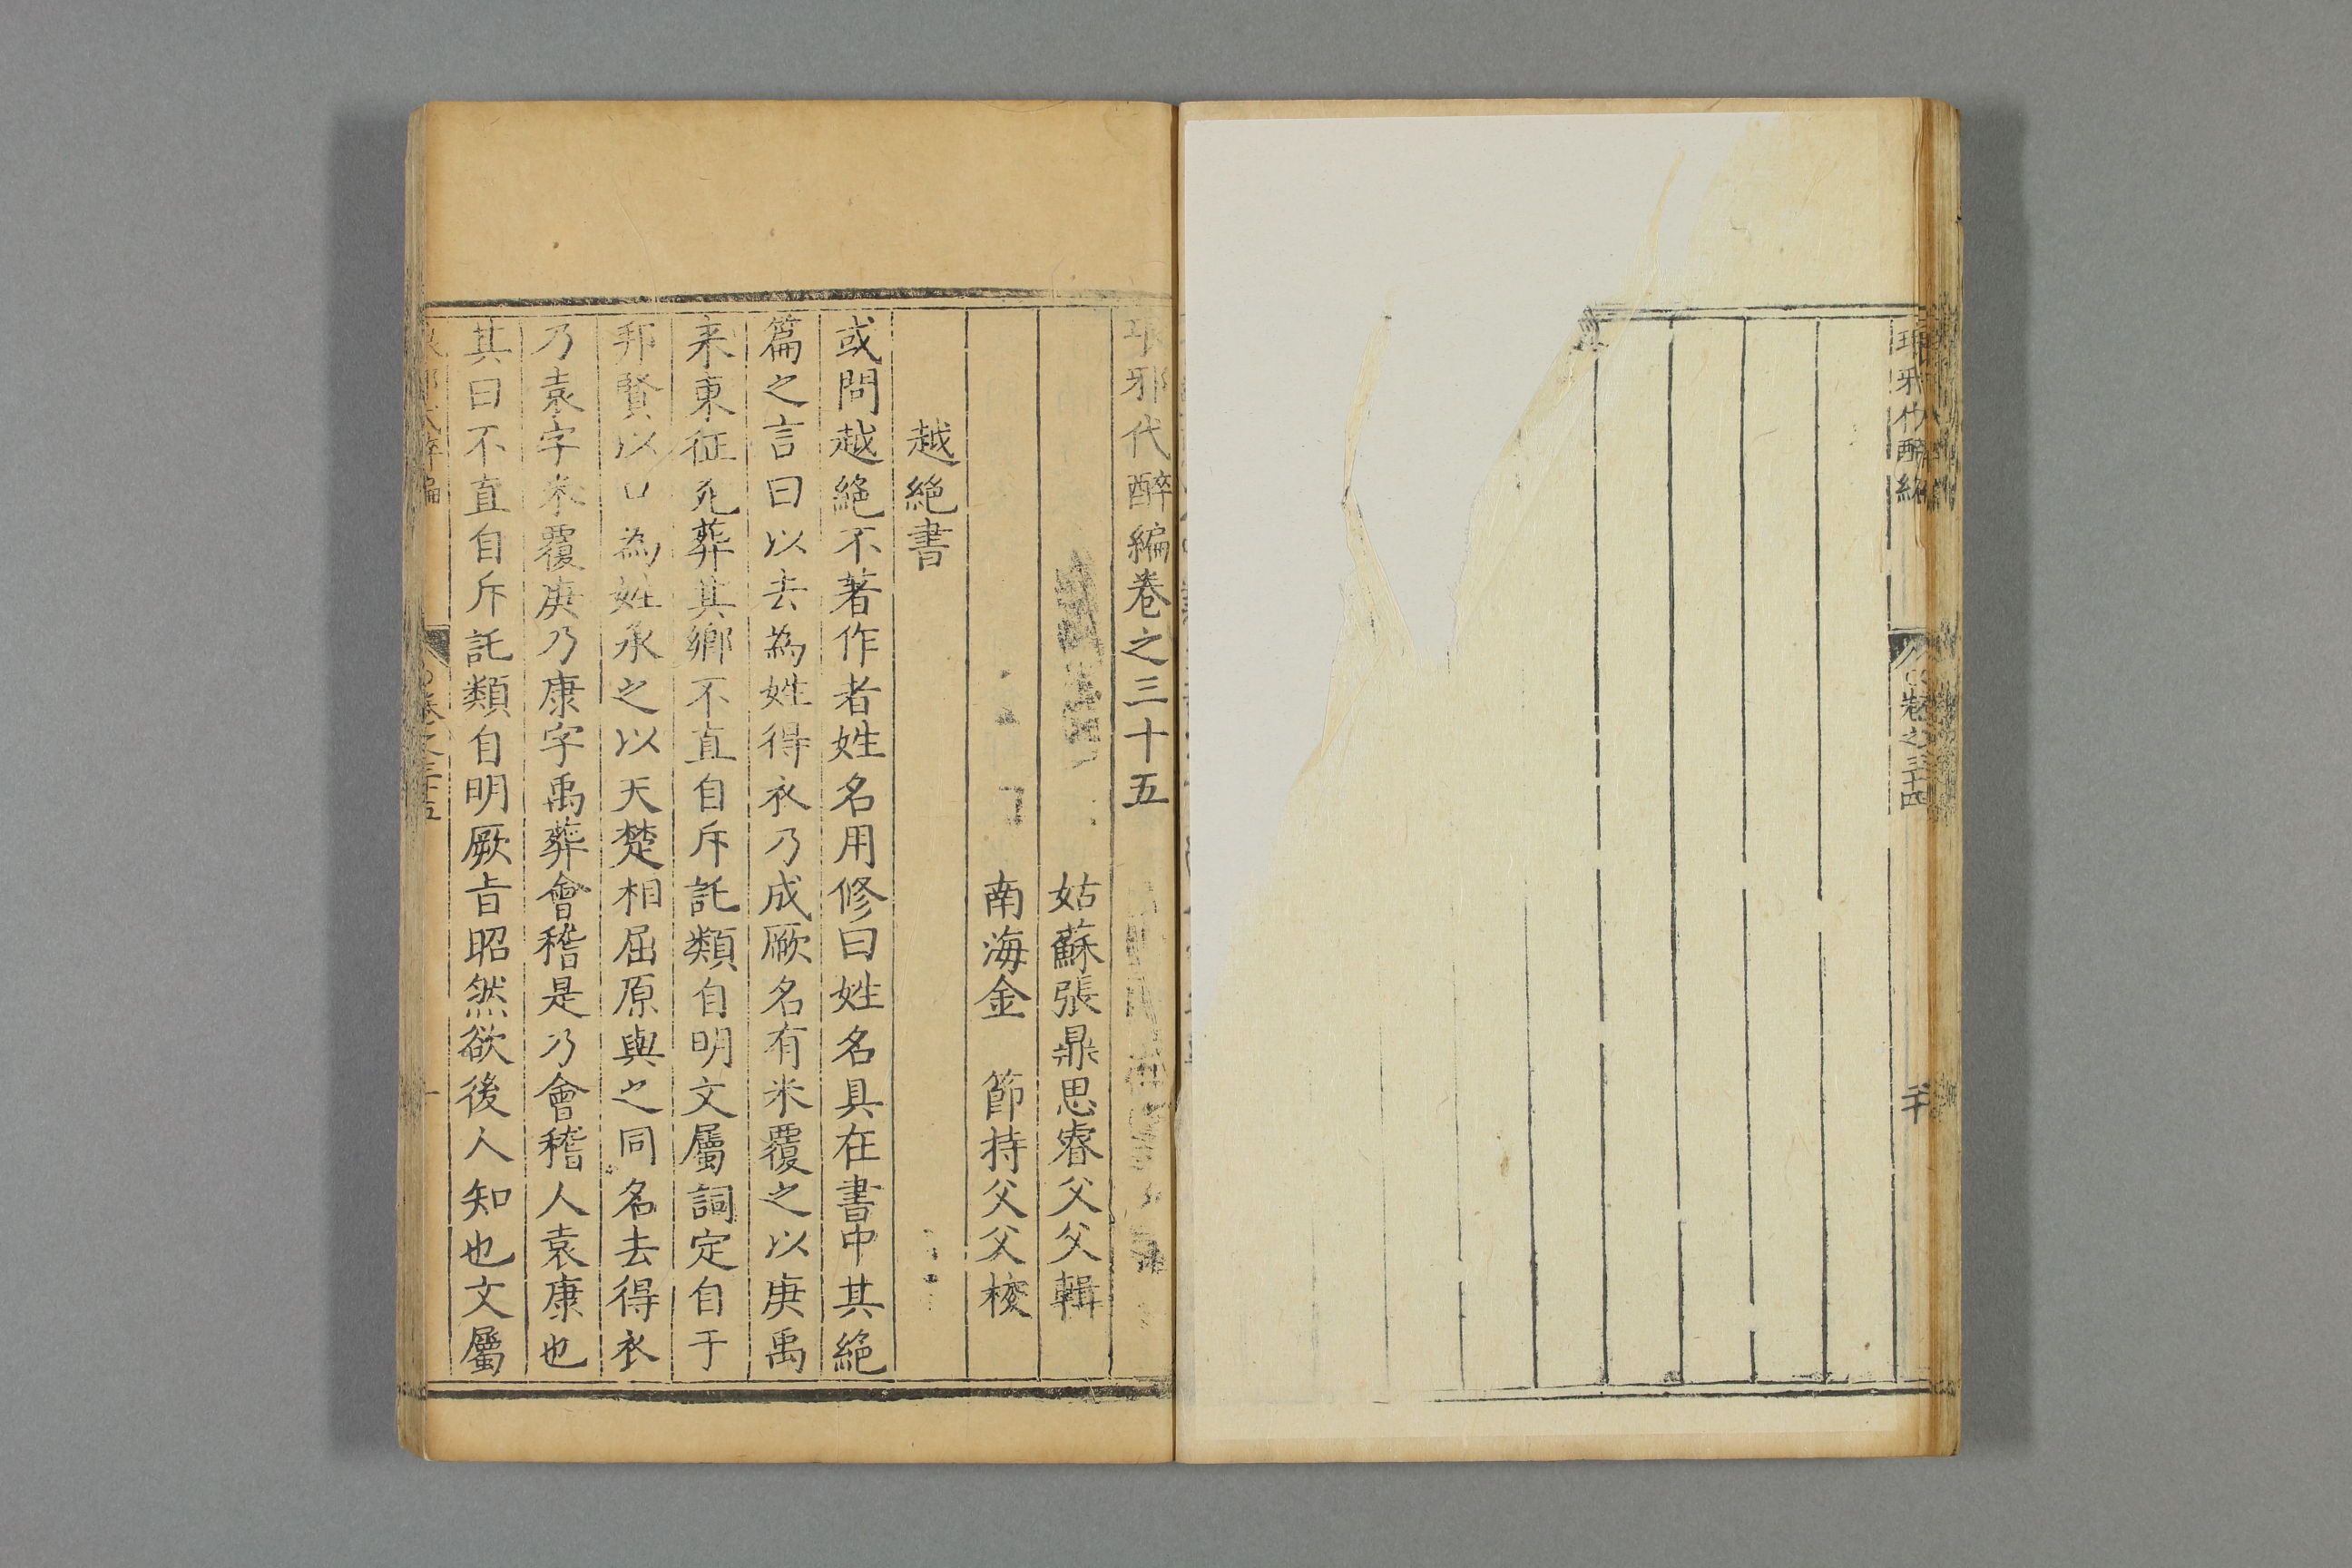 琅邪代醉編
卷之三十四
琅邪代醉編卷之三十五
姑蘇張鼎思睿父父輯
南海金 節持父父校
越絶書
或問越絶不著作者姓名用修曰姓名具在書中其絶
篇之言曰以去為姓得衣乃成厥名有米覆之以庚禹
来東征死葬其鄉不直自斥託類自明文屬詞定自于
邦賢以口為姓承之以天楚相屈原與之同名去得衣
乃袁字米覆庚乃康字禹葬會稽是乃會稽人袁康也
其曰不直自斥託類自明厥旨昭然欲後人知也文屬
卷之三十五
一